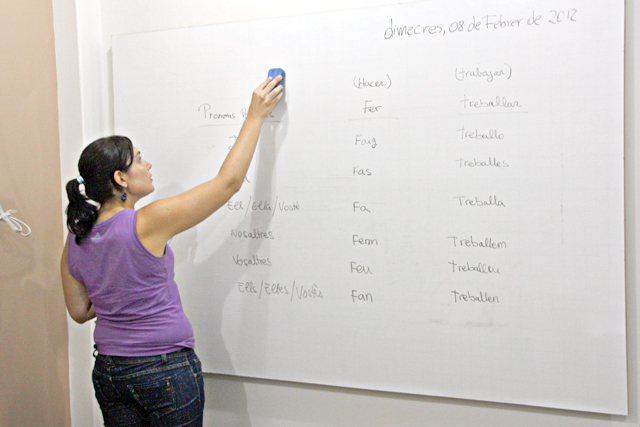 dimecres, 08 de Febrer de 2012
(Hacer) (trabajar)
Pronoms Fer treballar
Faig treballo
Fas treballes
Ell/Ella/Vostè Fa treballa
Nosaltres Ferm treballem
Vosaltres Feu treballeu
Ells/Elles/Vostès Fan treballen